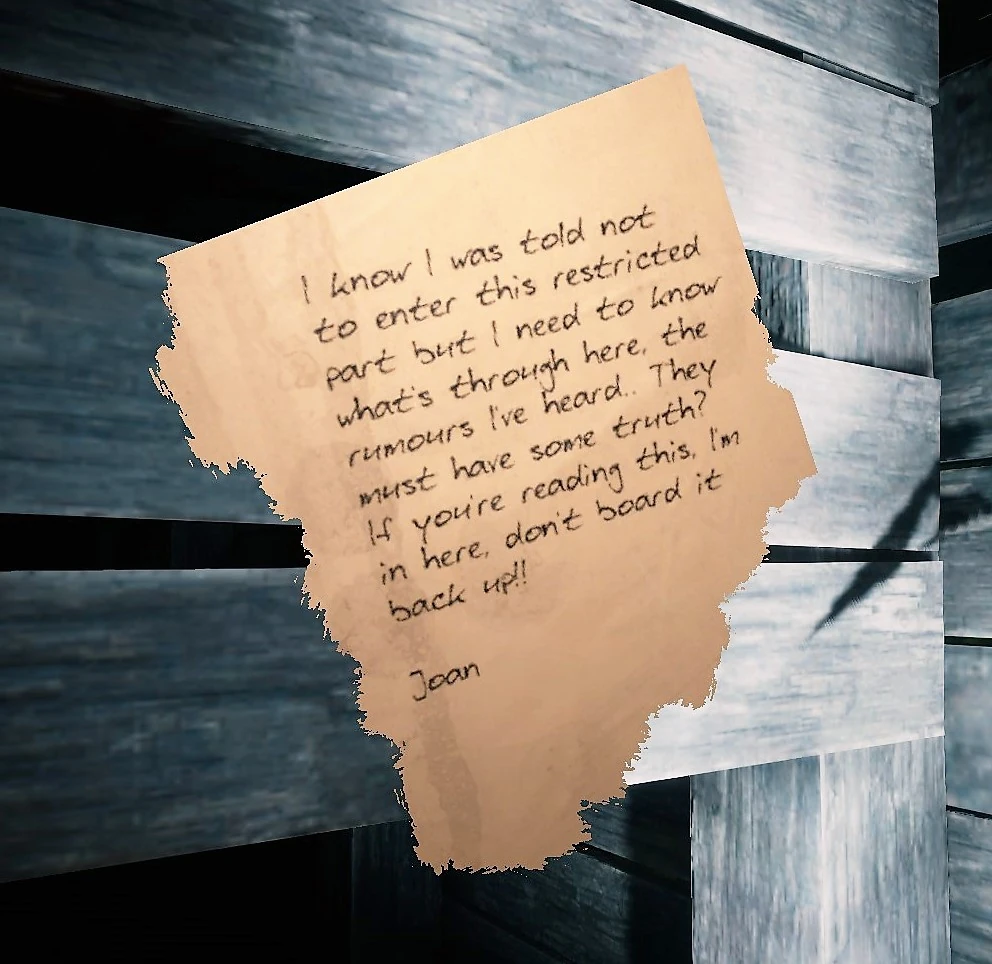 I know I was told not
to enter this restricted
part but I need to know
what's through here, the
rumours I've heard.. They
must have some truth?
If you're reading this, I'm
in here, don't board it
back up!!
Joan